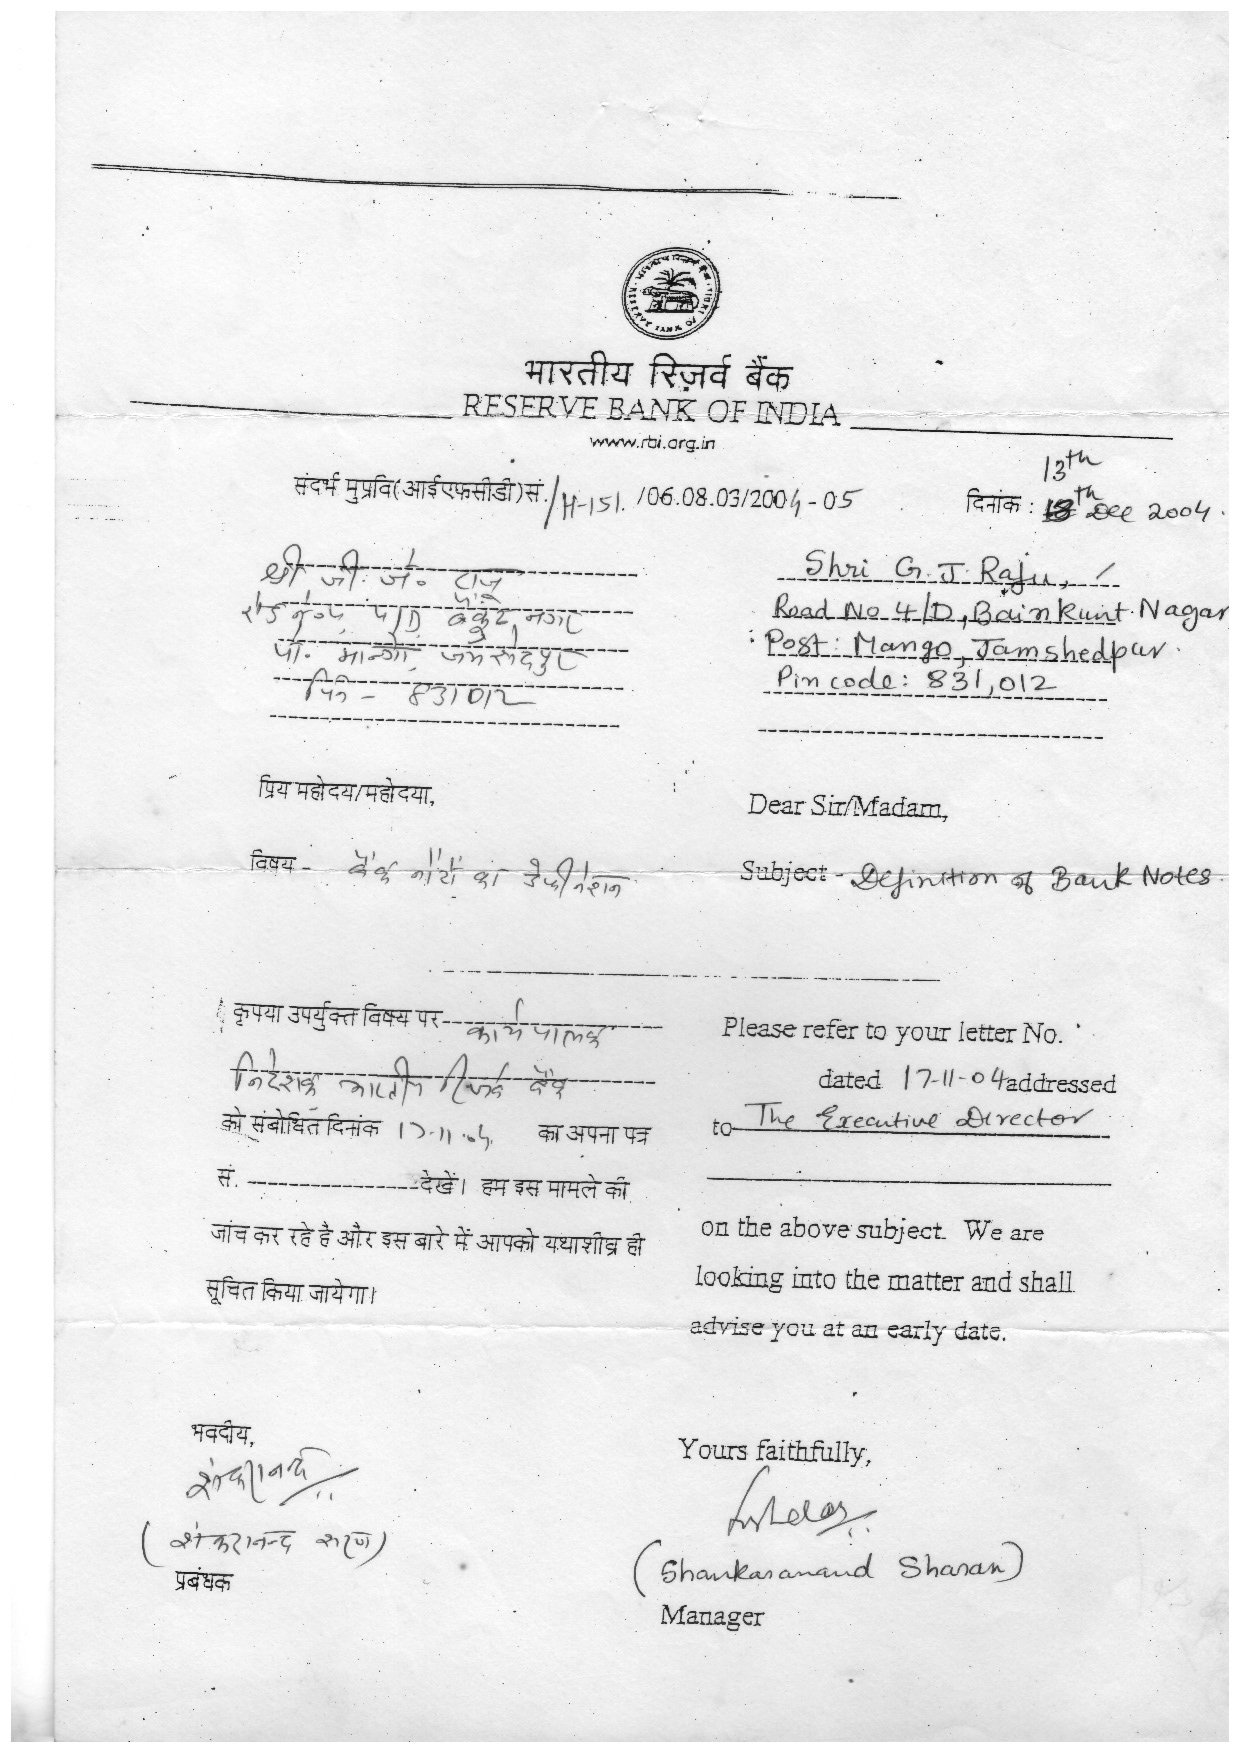 भारतीय रिज़र्व बैंक
RESERVE BANK OF INDIA
www.rbi.org.in
संदर्भ मुप्रवि(आईएफसीडी)सं./H-151./06.08.03/2004-05
13th
दिनांक : th Dec 2004.
श्री जी. जे. राजू
रोड नं० 4/D बैंकुंट नगर
पो. मान्गो, जमशेदपुर
पिन - 831012
Shri G.J. Raju,
Road No 4/D, Bainkunt Nagar
Post: Mango, Jamshedpur.
Pin code: 831,012
प्रिय महोदय/महोदया,
Dear Sir/Madam,
विषय - बैंक नोटों का डेफीनेशन
Subject - Definition of Bank Notes.
कृपया उपर्युक्त विषय पर कार्यपालक
निदेशक भारतीय रिजर्व बैंक
को संबोधित दिनांक 17-11-04 का अपना पत्र
सं. देखें। हम इस मामले की
जांच कर रहे है और इस बारे में आपको यथाशीघ्र ही
सूचित किया जायेगा।
Please refer to your letter No.
dated 17-11-04 addressed
to The Executive Director
on the above subject. We are
looking into the matter and shall
advise you at an early date.
भवदीय,
शंकरानन्द
(शंकरानन्द सरण)
प्रबंधक
Yours faithfully,
(Shankaranand Sharan)
Manager